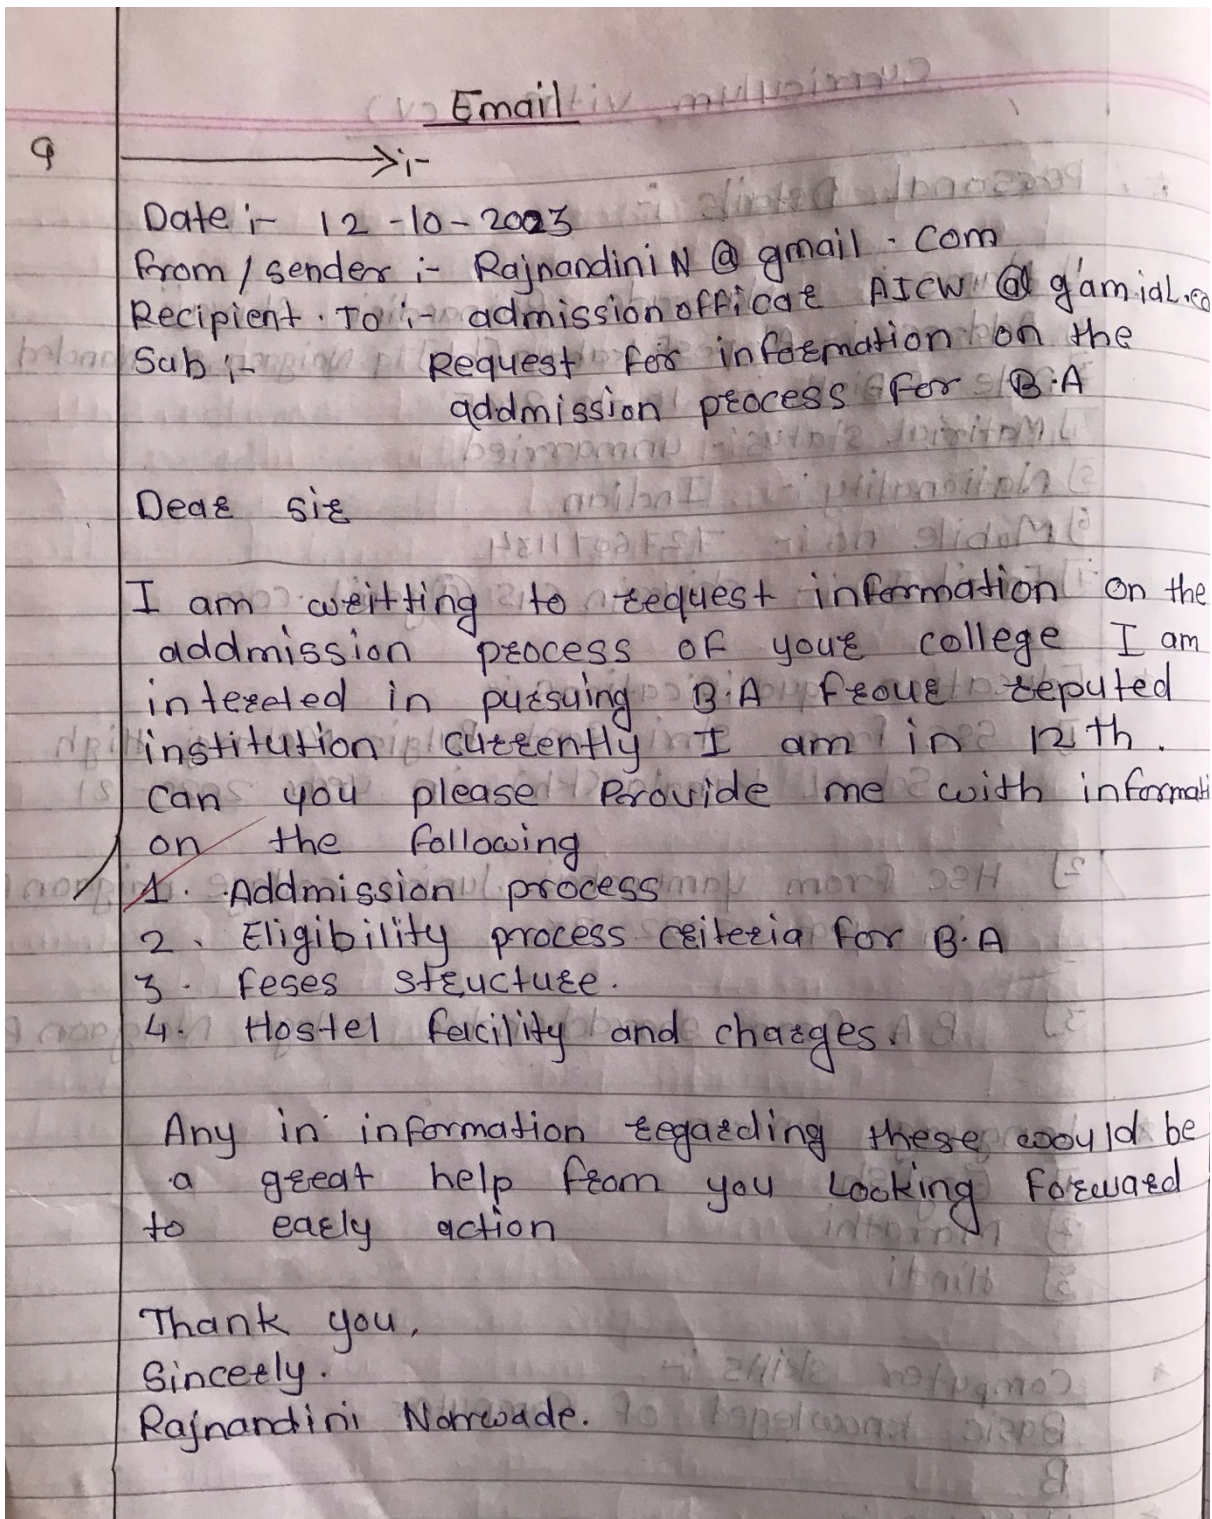 Email
9 →:-
Date :- 12-10-2023
From / sender :- Rajnandini N @ gmail . com
Recipient . To :- admission officat AICW @ gamial.co
Sub :- Request for information on the
addmission process for B.A
Dear sir
I am writting to request information on the
addmission process of your college I am
intereted in pursuing B.A froue reputed
institution currently I am in 12th.
can you please Provide me with informati
on the following
1. Addmission process
2. Eligibility process criteria for B.A
3. feses structure.
4. Hostel fecility and charges.
Any in information regarding these would be
a great help from you Looking forward
to early action
Thank you,
Sincerly.
Rajnandini Narwade.